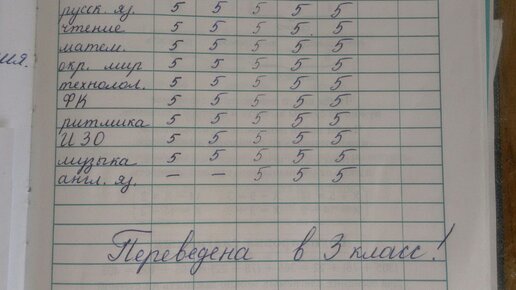 русск. яз. 5 5 5 5 5
чтение 5 5 5 5 5
матем. 5 5 5 5 5
окр. мир 5 5 5 5 5
технолог. 5 5 5 5 5
ФК 5 5 5 5 5
ритмика 5 5 5 5 5
ИЗО 5 5 5 5 5
музыка 5 5 5 5 5
англ. яз. — — 5 5 5
Переведена в 3 класс!